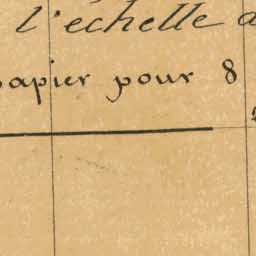 l'échelle
papier pour 8